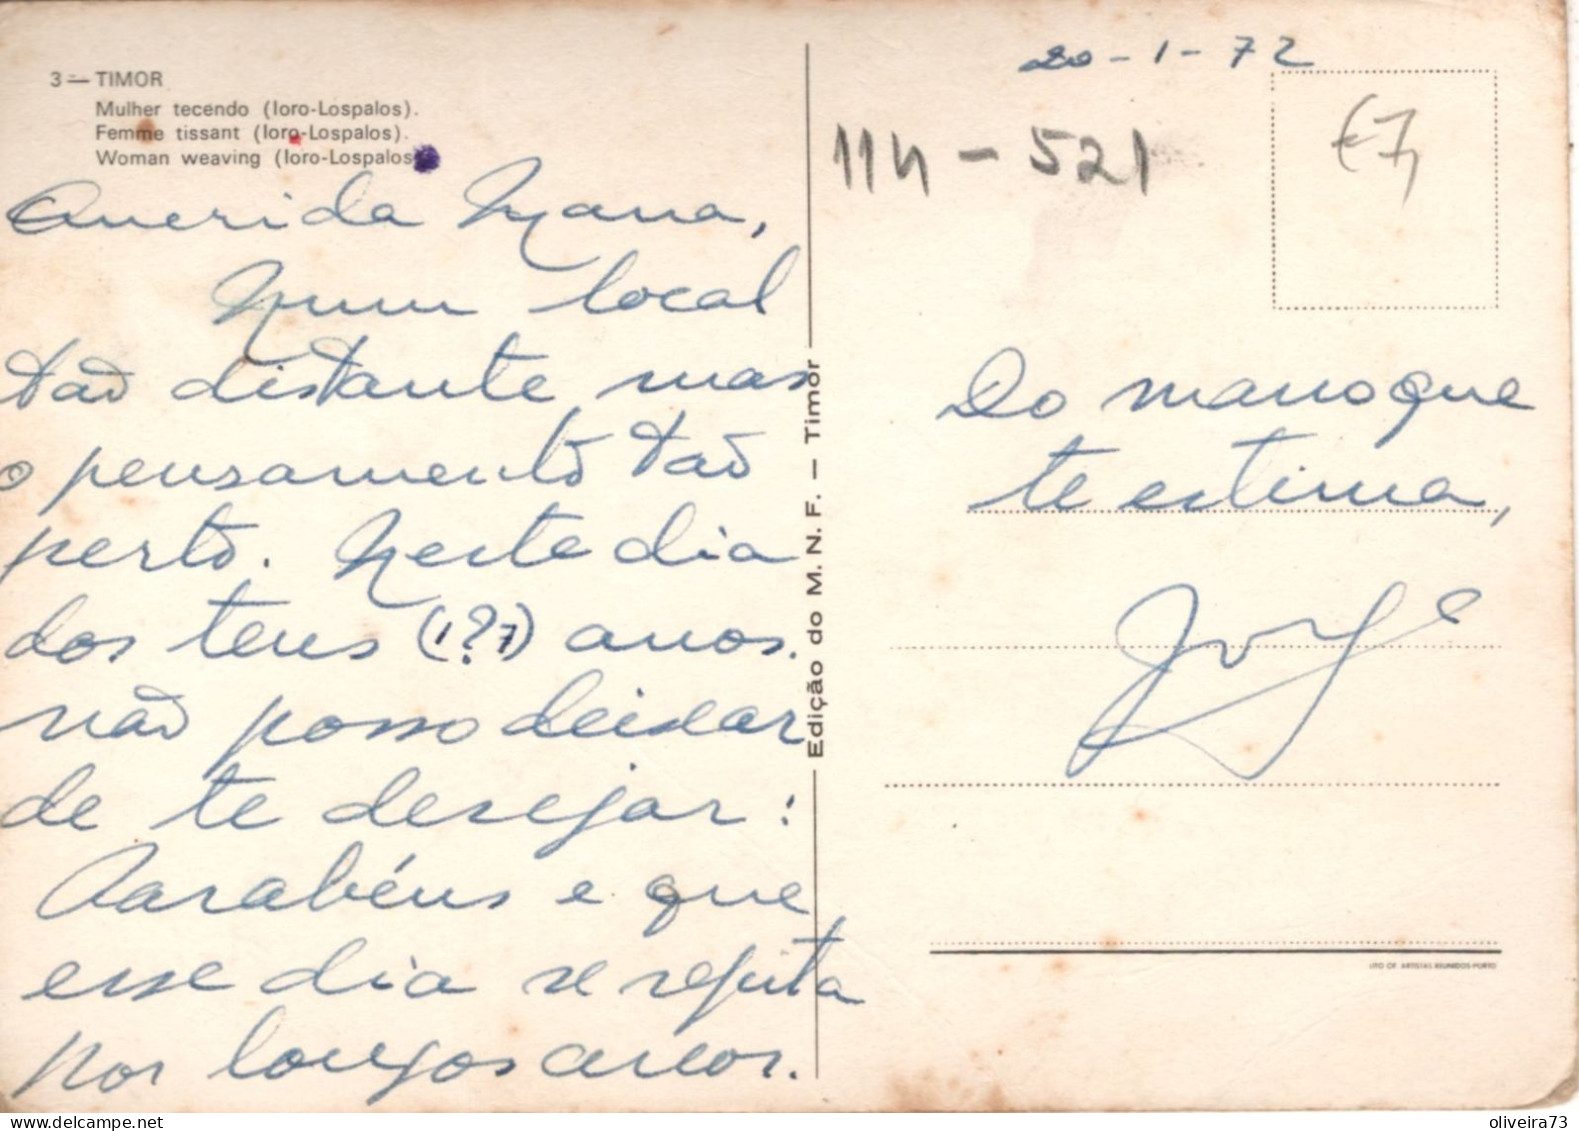 3 — TIMOR
Mulher tecendo (Ioro-Lospalos).
Femme tissant (Ioro-Lospalos).
Woman weaving (Ioro-Lospalos
Querida Mana,
Num local
tão distante mas
o pensamento tão
perto. Neste dia
dos teus (1?7) anos.
não posso deixar
de te desejar:
Parabéns e que
esse dia se repita
por longos anos.
Edição do M. N. F. — Timor
20-1-72
114-521
€7
Do mano que
te estima,
LITO OF. ARTISTAS REUNIDOS-PORTO
delcampe.net
oliveira73